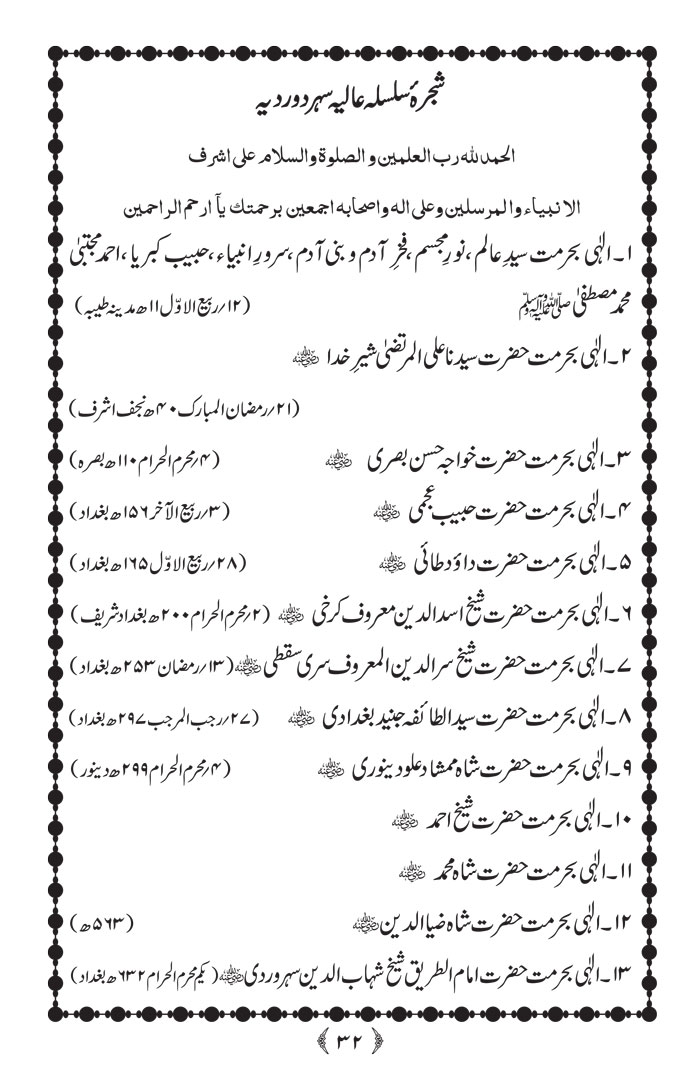 شجرۂ سلسلہ عالیہ سہروردیہ
الحمدلله رب العلمين و الصلوة والسلام على اشرف
الانبياء والمرسلين وعلى اله واصحابه اجمعين برحمتك يآ ارحم الراحمين
۱۔الٰہی بحرمت سیدِ عالم ،نورِ مجسم ،فخرِ آدم و بنی آدم ،سرورِ انبیاء ،حبیب کبریا ،احمد مجتبیٰ
محمد مصطفیٰ ﷺ (۱۲؍ربیع الاوّل ۱۱ھ مدینہ طیبہ)
۲۔الٰہی بحرمت حضرت سیدنا علی المرتضیٰ شیرِ خدا رضی اللہ عنہ
(۲۱؍رمضان المبارک ۴۰ھ نجف اشرف)
۳۔الٰہی بحرمت حضرت خواجہ حسن بصری رضی اللہ عنہ (۴؍محرم الحرام ۱۱۰ھ بصرہ)
۴۔الٰہی بحرمت حضرت حبیب عجمی رضی اللہ عنہ (۳؍ربیع الآخر ۱۵۶ھ بغداد)
۵۔الٰہی بحرمت حضرت داؤد طائی رضی اللہ عنہ (۲۸؍ربیع الاوّل ۱۶۵ھ بغداد)
۶۔الٰہی بحرمت حضرت شیخ اسد الدین معروف کرخی رضی اللہ عنہ (۲؍محرم الحرام ۲۰۰ھ بغداد شریف)
۷۔الٰہی بحرمت حضرت شیخ سر الدین المعروف سری سقطی رضی اللہ عنہ (۱۳؍رمضان ۲۵۳ھ بغداد)
۸۔الٰہی بحرمت حضرت سید الطائفہ جنید بغدادی رضی اللہ عنہ (۲۷؍رجب المرجب ۲۹۷ھ بغداد)
۹۔الٰہی بحرمت حضرت شاہ ممشاد علو دینوری رضی اللہ عنہ (۴؍محرم الحرام ۲۹۹ھ دینور)
۱۰۔الٰہی بحرمت حضرت شیخ احمد رضی اللہ عنہ
۱۱۔الٰہی بحرمت حضرت شاہ محمد رضی اللہ عنہ
۱۲۔الٰہی بحرمت حضرت شاہ ضیا الدین رضی اللہ عنہ (۵۶۳ھ)
۱۳۔الٰہی بحرمت حضرت امام الطریق شیخ شہاب الدین سہروردی رضی اللہ عنہ (یکم محرم الحرام ۶۳۲ھ بغداد)
﴿ ۳۲ ﴾